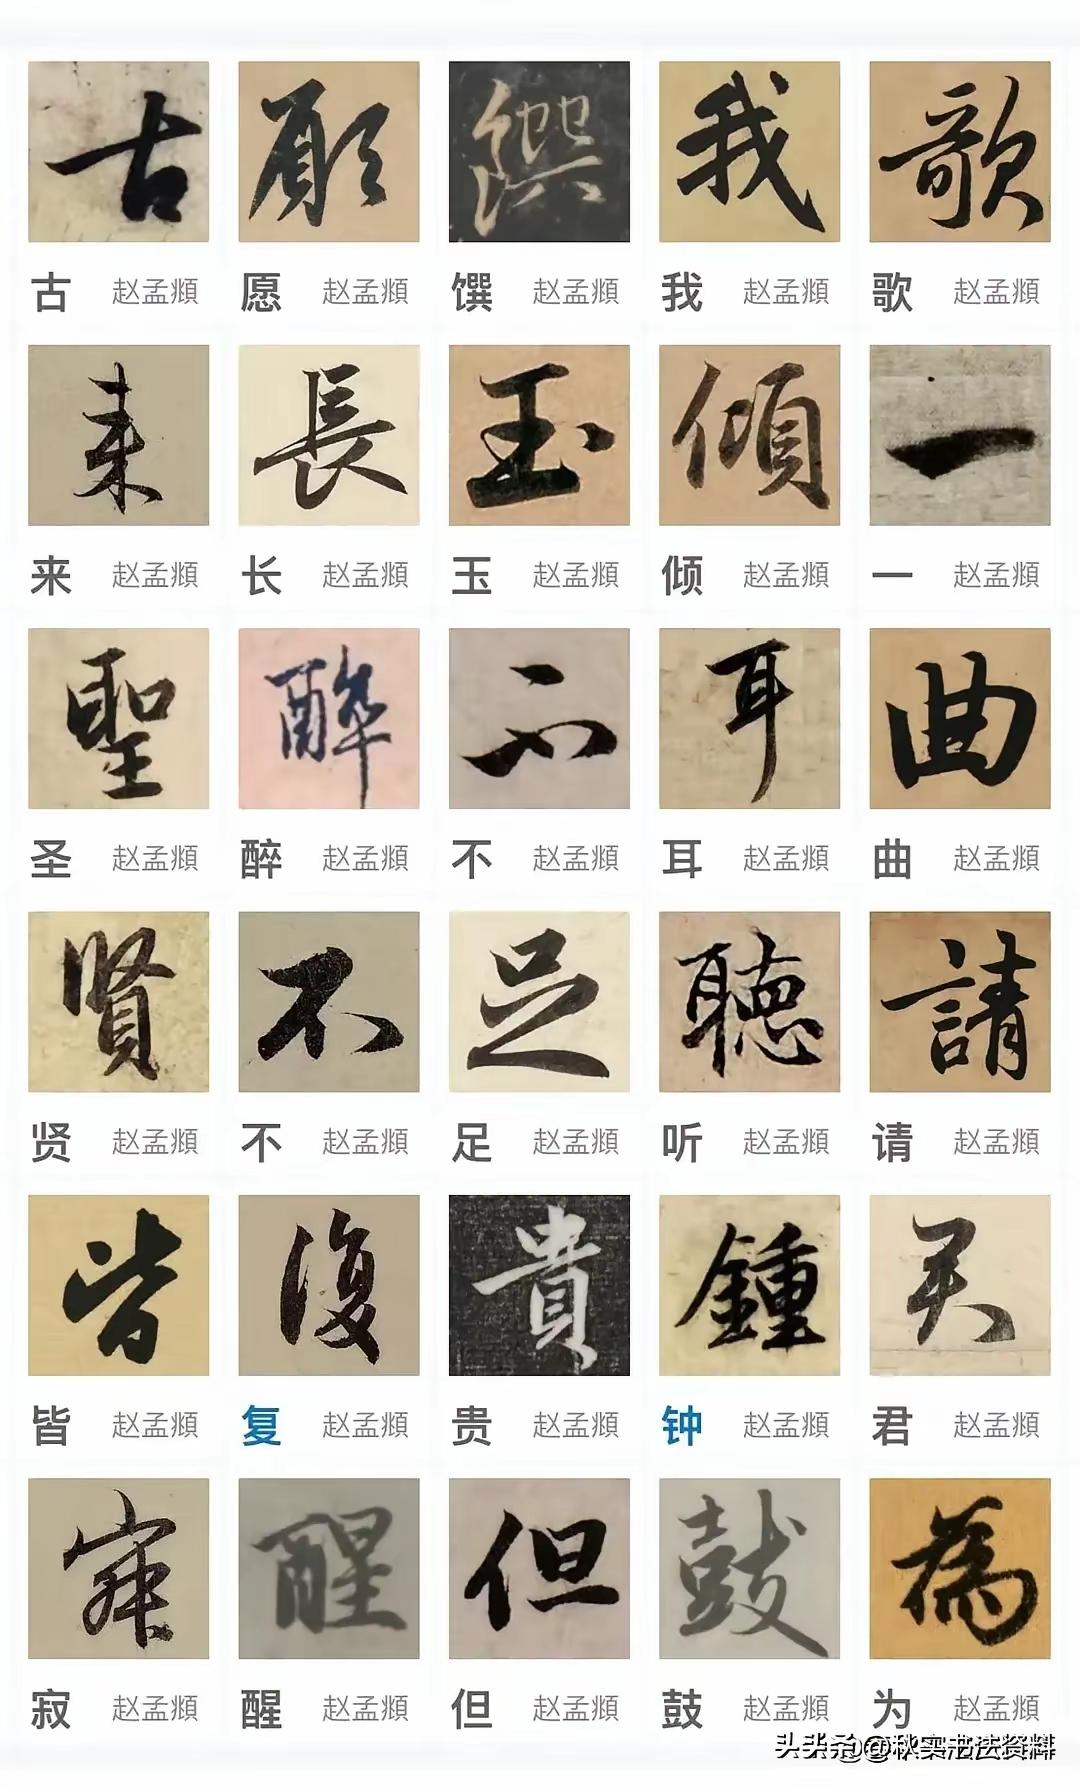 古 願 饌 我 歌
古 赵孟頫 愿 赵孟頫 馔 赵孟頫 我 赵孟頫 歌 赵孟頫
来 長 玉 傾 一
来 赵孟頫 长 赵孟頫 玉 赵孟頫 倾 赵孟頫 一 赵孟頫
聖 醉 不 耳 曲
圣 赵孟頫 醉 赵孟頫 不 赵孟頫 耳 赵孟頫 曲 赵孟頫
賢 不 足 聽 請
贤 赵孟頫 不 赵孟頫 足 赵孟頫 听 赵孟頫 请 赵孟頫
皆 復 貴 鍾 君
皆 赵孟頫 复 赵孟頫 贵 赵孟頫 钟 赵孟頫 君 赵孟頫
寂 醒 但 鼓 為
寂 赵孟頫 醒 赵孟頫 但 赵孟頫 鼓 赵孟頫 为 赵孟頫
头条 @秋实书法资料